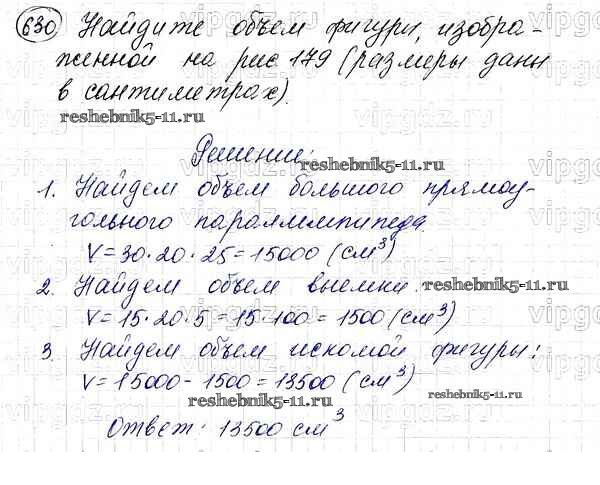 630 Найдите объем фигуры, изобра-
женной на рис 179 (размеры даны
в сантиметрах).
reshebnik5-11.ru
Решение:
reshebnik5-11.ru
1. Найдем объем большого прямоу-
гольного параллелепипеда.
V=30·20·25=15000 (см³)
2. Найдем объем выемки.
reshebnik5-11.ru
V=15·20·5=15·100=1500 (см³)
3. Найдем объем искомой фигуры:
V=15000-1500=13500 (см³)
reshebnik5-11.ru
reshebnik5-11.ru
Ответ: 13500 см³